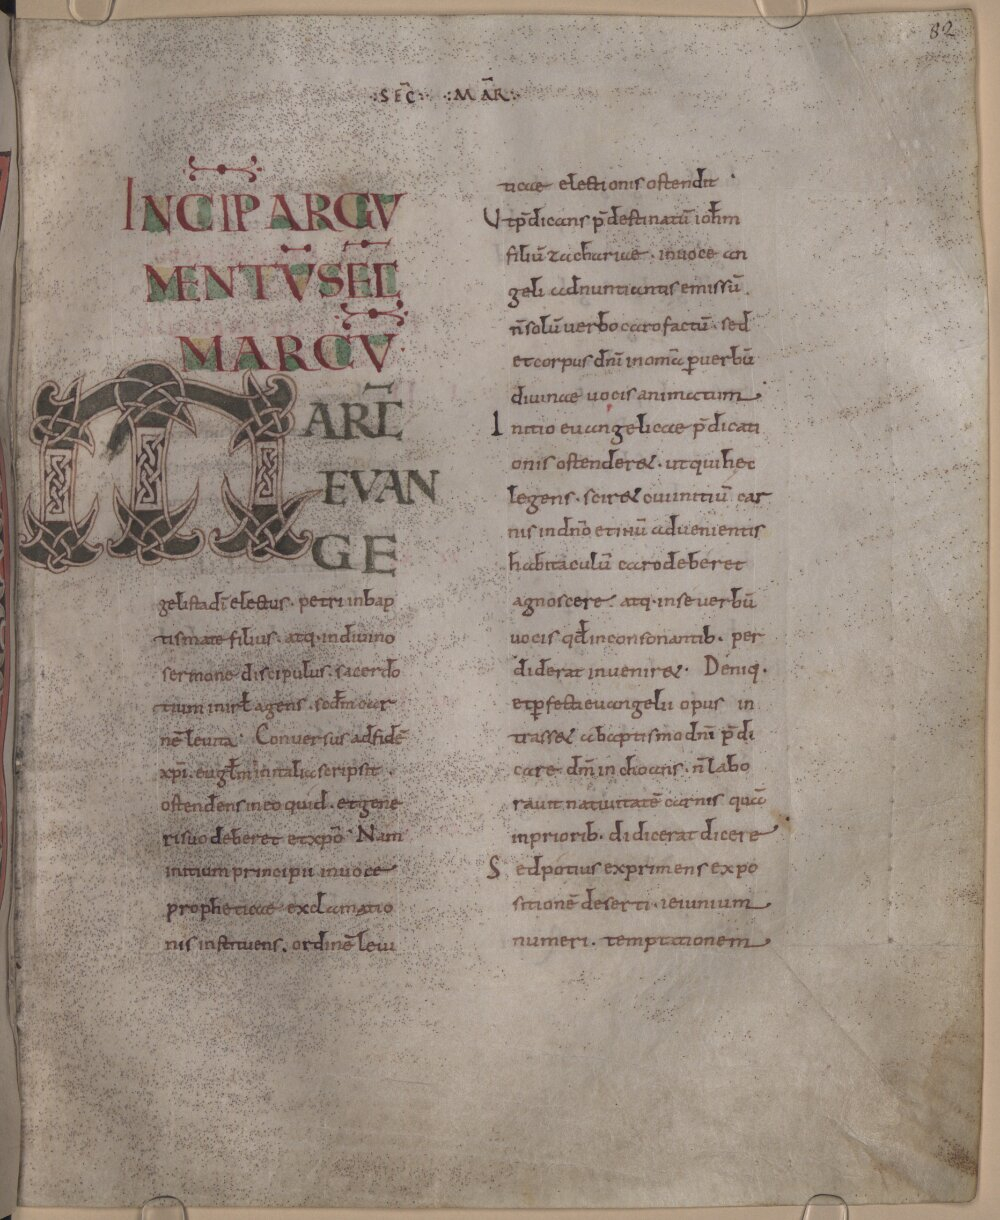 82
:SEC̄: :MĀR:
INCIP ARGU
MENTŪ SEC̄
MARCU
MARC̄
EVAN
GE
gelista dī electus. petri in bap
tismate filius. atq. in diuino
sermone discipulus. sacerdo
tium in irł agens. scdm car
nē leuita. Conuersus ad fidē
xp̄i. euglm in italia scripsit.
ostendens in eo quid. et gene
ri suo deberet et xp̄o. Nam
initium principii in uoce
propheticae exclamatio
nis instituens. ordinē leui
ticae electionis ostendit
Ut p̄dicans p̄destinatū iohm
filiū zachariae. in uoce an
geli adnuntiantis emissū.
n̄ solū uerbo caro factū. sed
et corpus dn̄i in omā ꝑ uerbū
diuinae uocis animatum
Initio euangelicae p̄dicati
onis ostender&. ut qui hec
legens. scir& cui initiū car
nis in dn̄o et ihū aduenientis
habitaculū caro deberet
agnoscere. atq. in se uerbū
uocis qd in consonantib. per
diderat inuenir&. Deniq.
et ꝑfecta euangelii opus in
trass& a baptismo dn̄i p̄di
care dn̄m inchoans. n̄ labo
rauit natiuitatē carnis quā
in priorib. didicerat dicere
Sed potius exprimens expo
sitionē deserti. ieiunium
numeri. temptationem